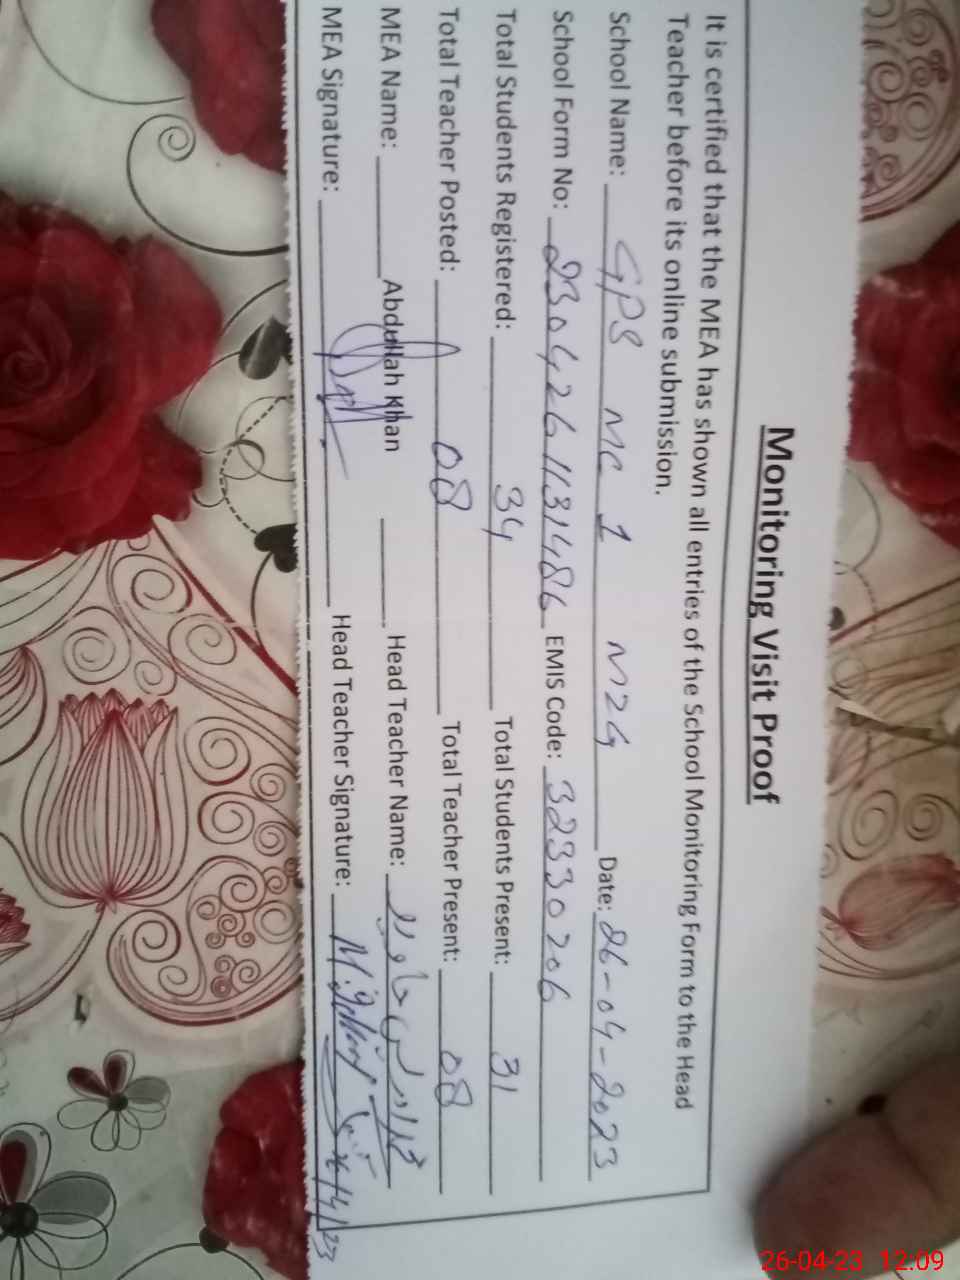 Monitoring Visit Proof
It is certified that the MEA has shown all entries of the School Monitoring Form to the Head
Teacher before its online submission.
School Name: GPS MC 1 Date: 26-04-2023
School Form No: 2304261131486 EMIS Code: 32330206
Total Students Registered: 34 Total Students Present: 31
Total Teacher Posted: 08 Total Teacher Present: 08
MEA Name: Abdullah Khan Head Teacher Name:
MEA Signature: Head Teacher Signature:
26-04-23 12:09